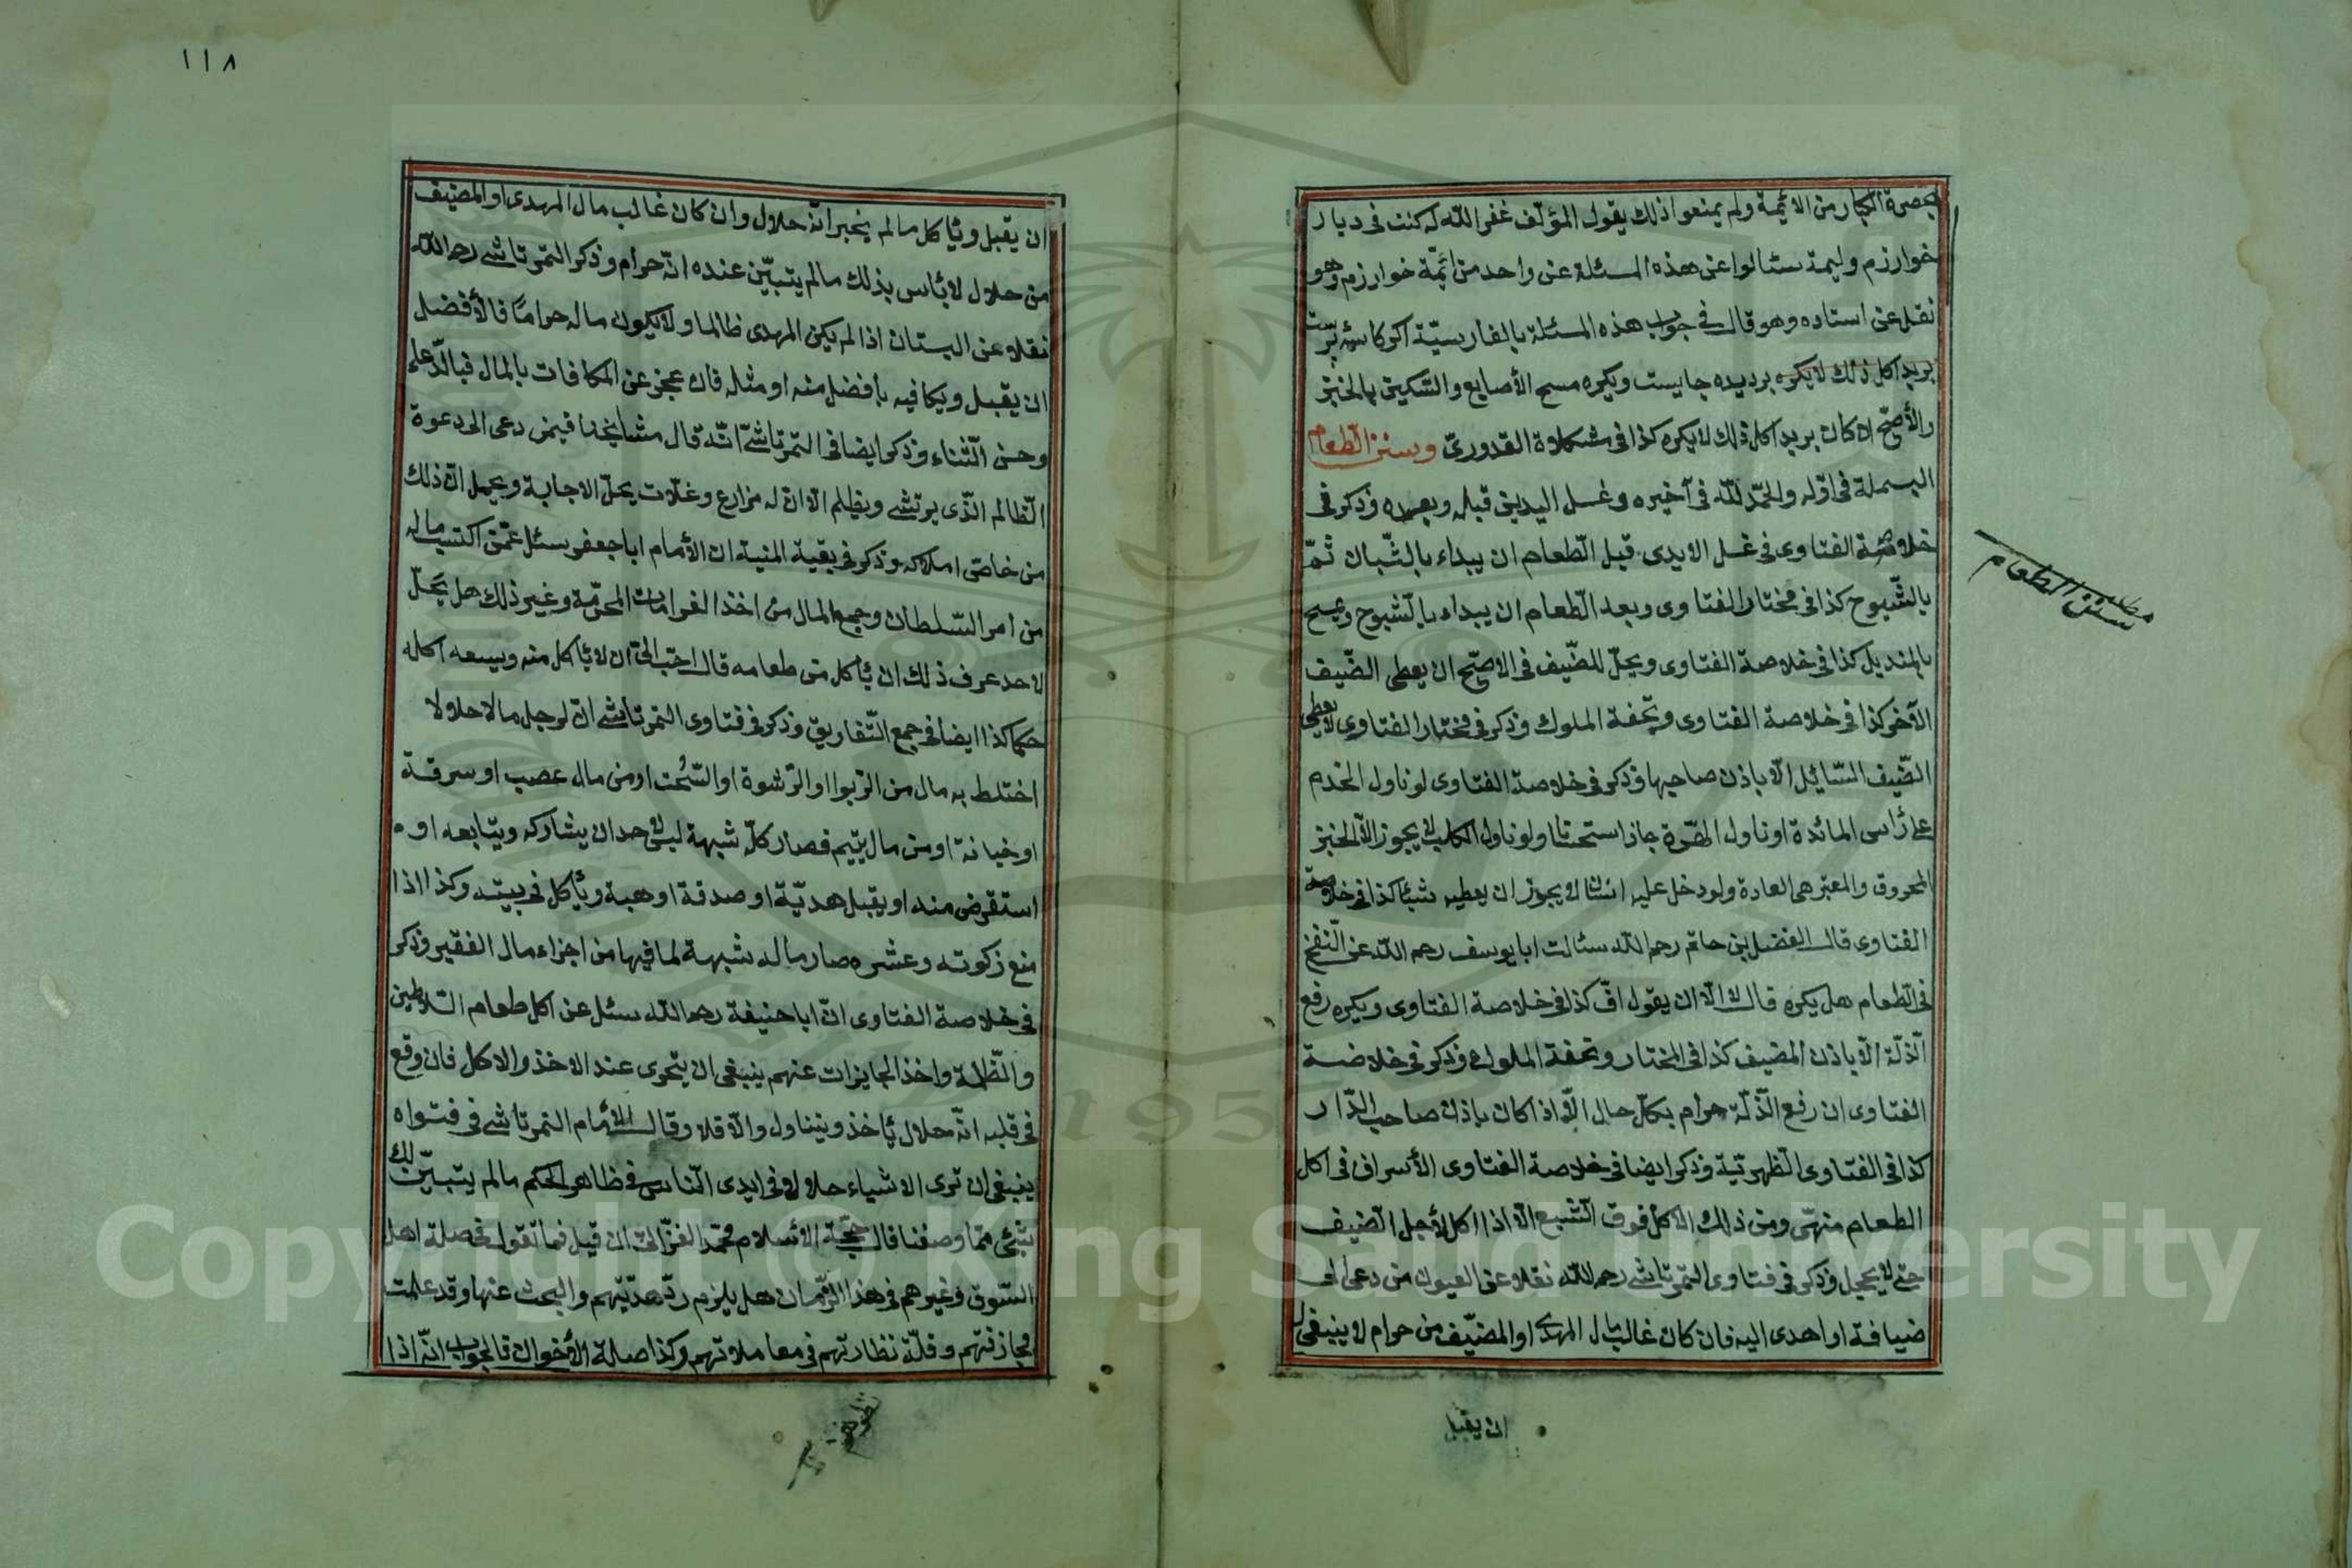 بحضرة الكبار من الائمة ولم يمنعوا ذلك يقول المؤلف غفر الله له كنت فى ديار
خوارزم وليمة سئالوا عن هذه المسئلة عن واحد من ائمة خوارزم وهو
نقل عن استاده وهو قال فى جواب هذه المسئلة بالفارسيّة اكر كاسه
يريد اكل ذلك لا يكره جايست ويكره مسح الأصابع والسّكين بالخبز
والأصحّ ان كان يريد اكل ذلك لا يكره كذا فى القدورىّ وسنن الطعام
البسملة فى اوّله والحمد للّه فى آخيره وغسل اليدين قبله وبعده وذكر فى
خلاصة الفتاوى فى غسل الايدى قبل الطّعام ان يبداء بالشّبان ثمّ
بالشّيوح كذا فى مختار الفتاوى وبعد الطّعام ان يبداء بالشيوح ويمسح
بالمنديل كذا فى خلاصة الفتاوى ويحلّ للضّيف فى الاصحّ ان يعطى الضّيف
الآخر كذا فى خلاصة الفتاوى وتحفة الملوك وذكر فى مختار الفتاوى لا يعطى
الضّيف السّايئل الّا باذن صاحبها وذكر فى خلاصة الفتاوى لو ناول الخدم
على رأس المائدة او ناول الهّرة جاز استحنانا ولو ناول الكلب لا يجوز الّا الخبز
المحروق والمعتبر هى العادة ولو دخل عليه انسان لا يجوز ان يعطيه شيئا كذا فى خلاصة
الفتاوى قال الفضل بن حاتم رحمه اللّه سئالت ابا يوسف رحمه اللّه عن النّفخ
فى الطّعام هل يكره قال لا الّا ان يقول افّ كذا فى خلاصة الفتاوى ويكره رفع
الذلّة الّا باذن المضيف كذا فى المختار وتحفة الملوك وذكر فى خلاصة
الفتاوى ان رفع الذّلّة حرام بكلّ حال الّا اذا كان باذن صاحب الدّار
كذا فى الفتاوى الظهريّة وذكر ايضا فى خلاصة الفتاوى الأسراف فى اكل
الطعام منهىّ ومن ذلك الاكل فوق الشبع الّا اذا اكل لأجل الضيف
حتى لا يخجل وذكر فى فتاوى التمرتاشى رحمه اللّه نقلا عن العيون من دعى الى
ضيافة او اهدى اليه فان كان غالب مال المهدى او المضيّف من حرام لا ينبغى له
ان يقبل
مطلب
سنن الطعام
١١٨
ان يقبل ويأكل مالم يخبر انّه حلال وان كان غالب مال المهدى او المضيف
من حلال لا بأس بذلك مالم يتبيّن عنده انّه حرام وذكر التمرتاشى رحمه اللّه
نقلا عن البستان اذا لم يكن المهدى ظالما ولا يكون ماله حرامًا فالأفضل
ان يقبل ويكافيه بأفضل منه او مثله فان عجز عن المكافات بالمال فبالدّعاء
وحسن الثّناء وذكر ايضا فى التمرتاشىّ انّه قال مشايخنا فيمن دعى الى دعوة
الظّالم الّذى يرتشى ويظلم الّا انّ له مزارع وغلّات يحلّ الاجابة ويحمل انّ ذلك
من خاصّ املاكه وذكر فى بقية المنية ان الأمام ابا جعفر سئل عمّن اكتسب ماله
من امر السّلطان وجمع المال من اخذ الغرامات المحرّمة وغير ذلك هل يحلّ
لاحد عرف ذلك ان يأكل من طعامه قال احبّ الىّ ان لا يأكل منه ويسعه اكله
حكما كذا ايضا فى جمع التّفاريق وذكر فى فتاوى التمرتاشى انّ لرجل مالا حلالا
اختلط به مال من الرّبوا او الرّشوة او السّحت او من مال عصب او سرقة
او خيانة او من مال يتيم فصار كلّه شبهة ليس لاحد ان يشاركه ويتابعه او
استقرض منه او يقبل هديّة او صدقة او هبة ويأكل فى بيته وكذا اذا
منع زكوته وعشره صار ماله شبهة لما فيها من اجزاء مال الفقير وذكر
فى خلاصة الفتاوى انّ ابا حنيفة رحمه اللّه سئل عن اكل طعام السّلاطين
والظّلمة واخذ الجايزات عنهم ينبغى ان يتحرى عند الاخذ والاكل فان وقع
فى قلبه انّه حلال يأخذ ويتناول والّا فلا وقال الأمام التمرتاشى فى فتواه
ينبغى ان ترى الاشياء حلالا فى ايدى النّاس فى ظاهر الحكم مالم يتبيّن لك
شئ ممّا وصفنا قال حجّة الأسلام محمّد الغزّالىّ ان قيل فما تقول فى صلة اهل
السّوق وغيرهم فى هذا الزّمان هل يلزم ردّ هديّتهم والبحث عنها وقد علمت
مجازفتهم وقلّة نظارتهم فى معاملاتهم وكذا صلة الأخوان فالجواب انّه اذا
Copyright © King Saud University